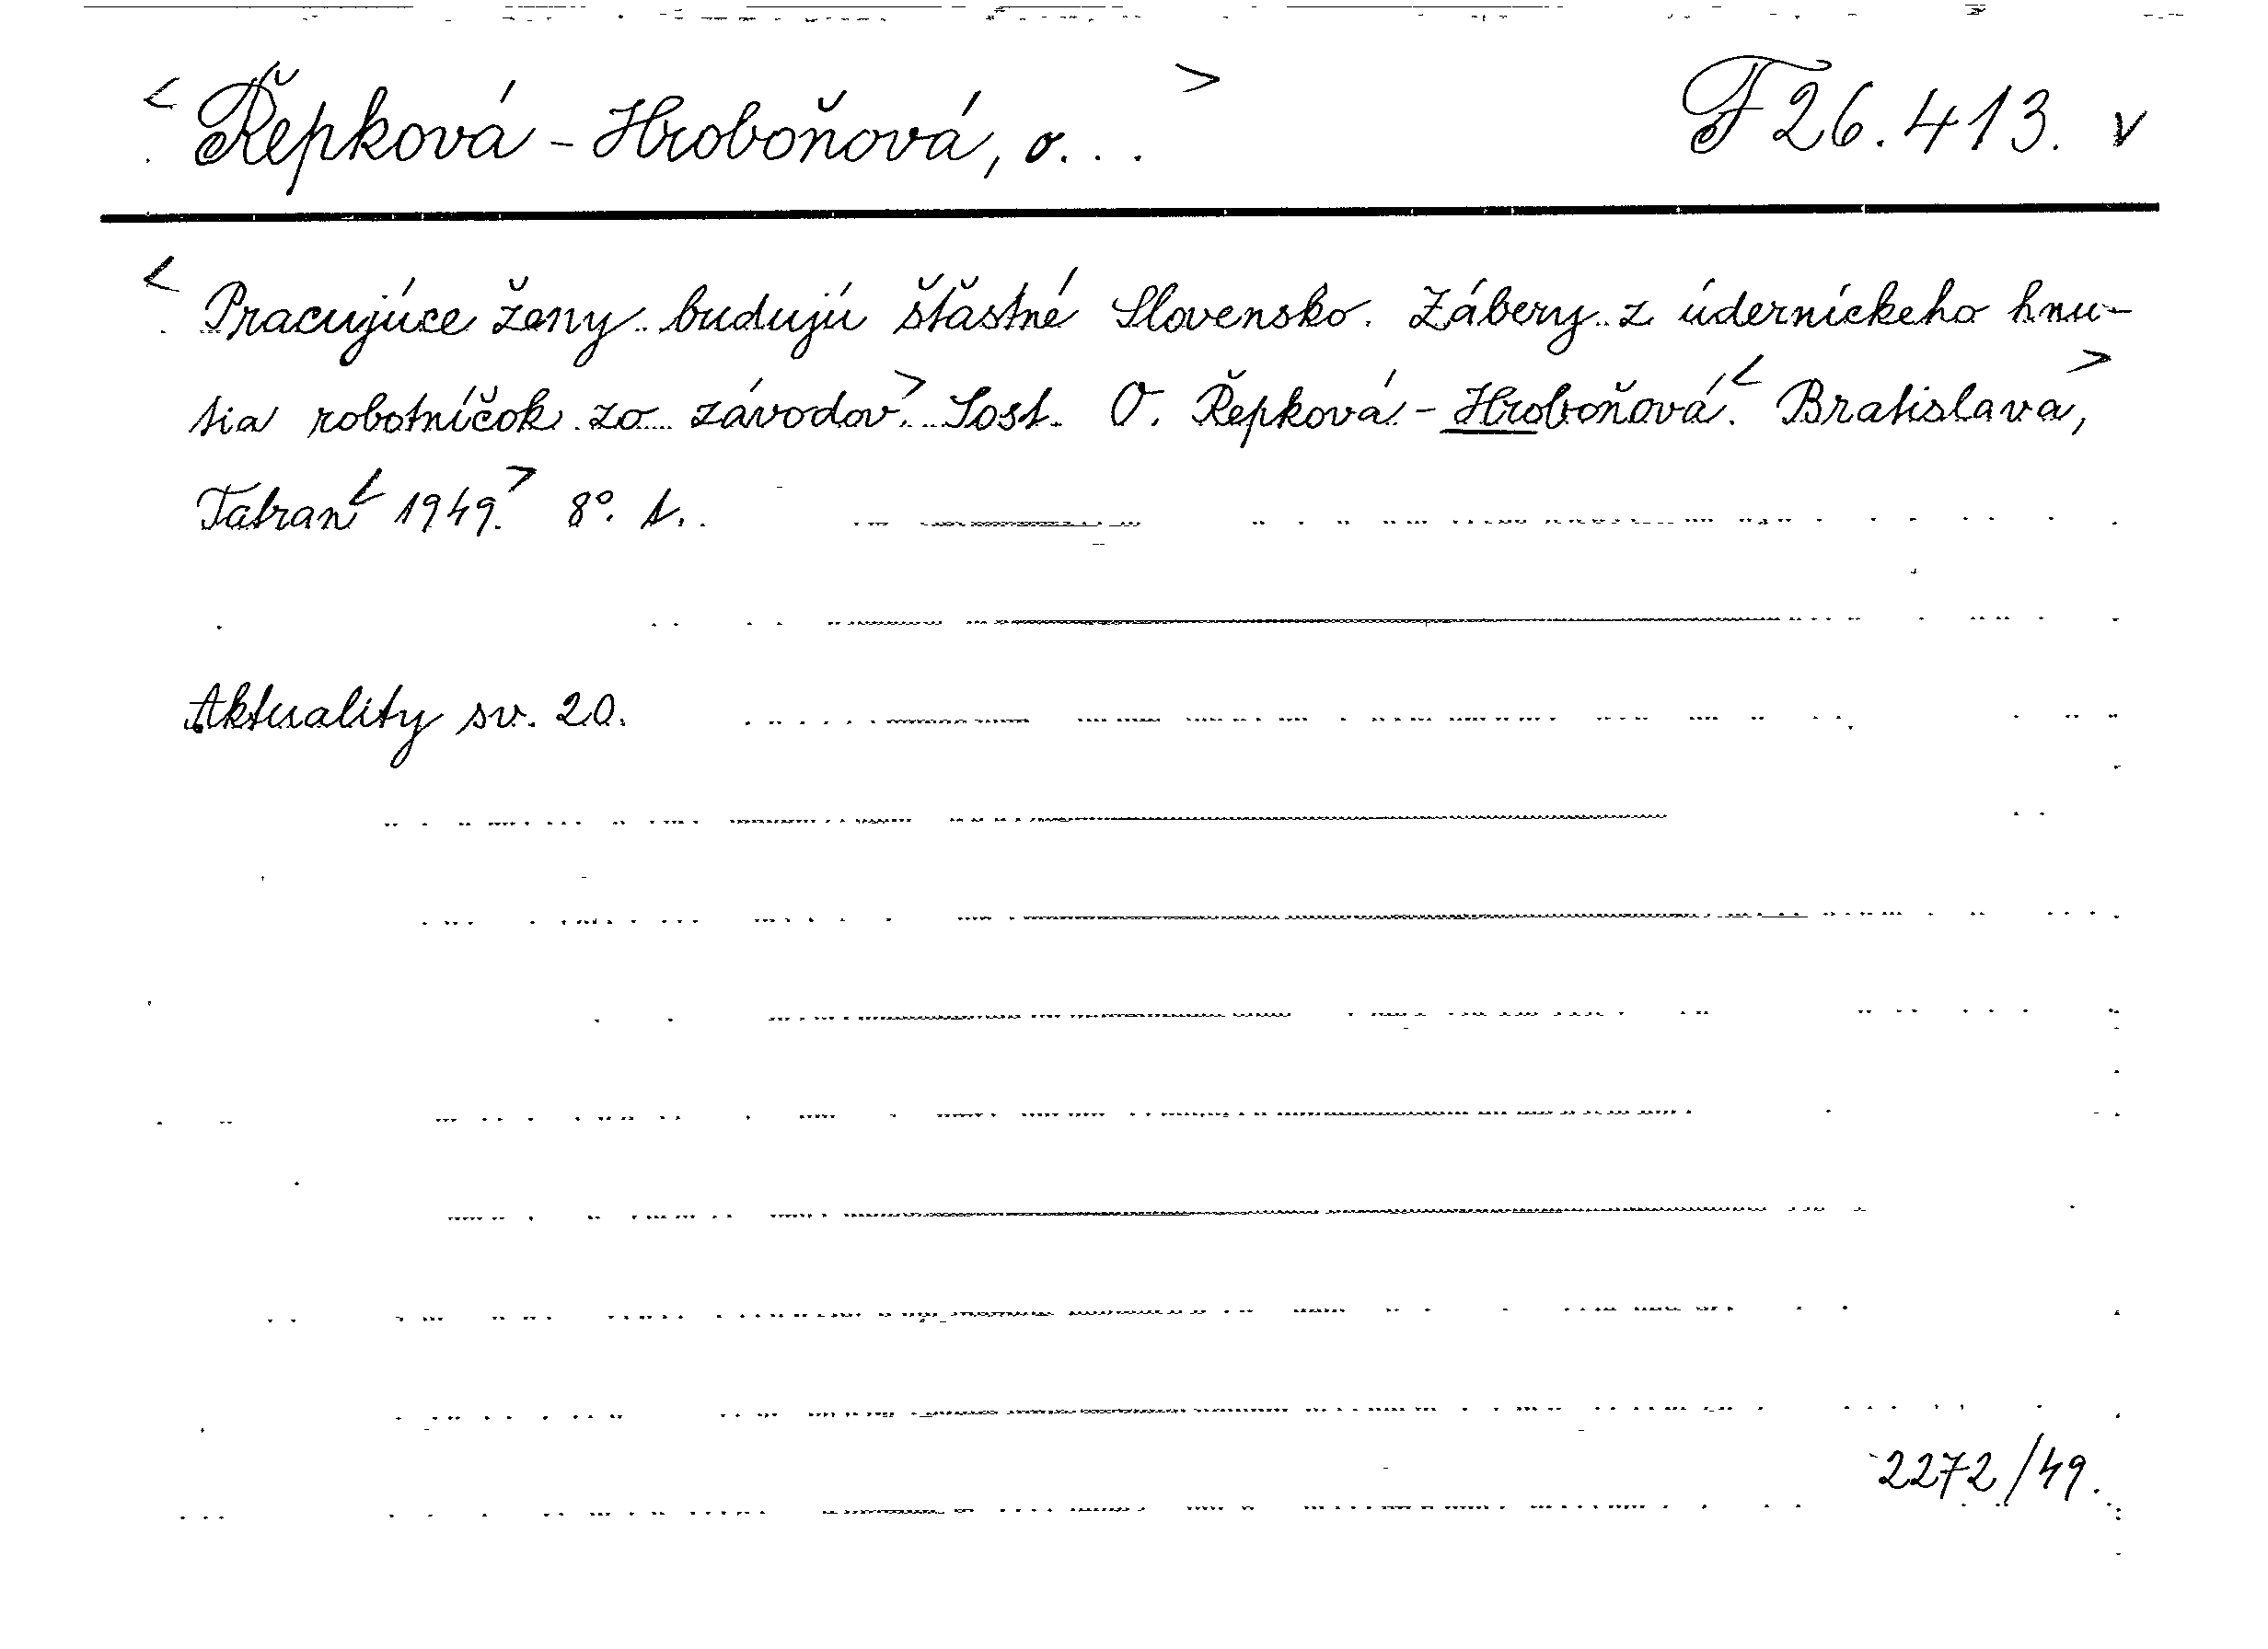 < Řepková - Hroboňová, o... > F 26.413. v
< Pracujúce ženy budujú šťastné Slovensko. Zábery z úderníckeho hnu-
tia robotníčok zo závodov.> Sost. O. Řepková - Hroboňová.< Bratislava,>
Tatran< 1949.> 8°. t.
Aktuality sv. 20.
2272/49.